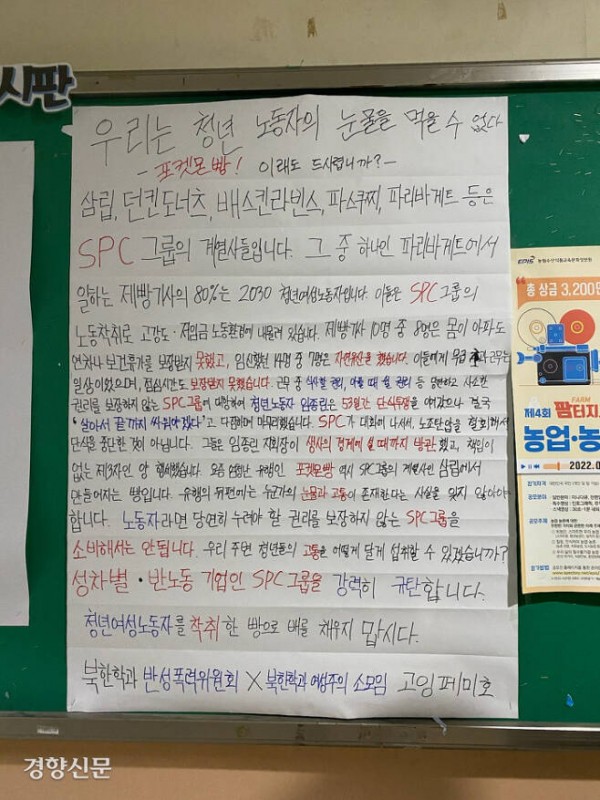 시판
우리는 청년 노동자의 눈물을 먹을 수 없다
- 포켓몬빵! 이래도 드시렵니까? -
삼립, 던킨도너츠, 배스킨라빈스, 파스쿠찌, 파리바게트 등은
SPC그룹의 계열사들입니다. 그 중 하나인 파리바게트에서
일하는 제빵기사의 80%는 2030 청년여성노동자입니다. 이들은 SPC그룹의
노동착취로 고강도·저임금 노동환경에 내몰려 있습니다. 제빵기사 10명 중 8명은 몸이 아파도
연차나 보건휴가를 보장받지 못했고, 임신했던 14명 중 7명은 자연유산을 했습니다. 이들에게
일상이었으며, 점심시간도 보장받지 못했습니다. 근무 중 식사할 권리, 아플 때 쉴 권리 등 당연하고 사소한
권리를 보장하지 않는 SPC그룹에 대항하여 청년노동자 임종린은 53일간 단식투쟁을 이어갔으나 결국
"살아서 끝까지 싸워야겠다"고 다짐하며 마무리했습니다. SPC가 대화에 나서서, 노조탄압을 철회해서
단식을 중단한 것이 아닙니다. 그들은 임종린 지회장이 생사의 경계에 설 때까지 방관했고, 책임이
없는 제3자인 양 행세했습니다. 요즘 한창 유행인 포켓몬빵 역시 SPC그룹의 계열사인 삼립에서
만들어지는 빵입니다. 유행의 뒤편에는 누군가의 눈물과 고통이 존재한다는 사실을 잊지 않아야
합니다. 노동자라면 당연히 누려야 할 권리를 보장하지 않는 SPC그룹을
소비해서는 안됩니다. 우리 주변 청년들의 고통을 어떻게 달게 섭취할 수 있겠습니까?
성차별·반노동 기업인 SPC그룹을 강력히 규탄합니다.
청년여성노동자를 착취한 빵으로 배를 채우지 맙시다.
북한학과 반성폭력위원회 X 북한학과 여성주의 소모임 고잉페미호
EPIS 농림수산식품교육문화정보원
총 상금 3,200만
FARM
제4회 팜터지
농업·농
2022.0
경향신문